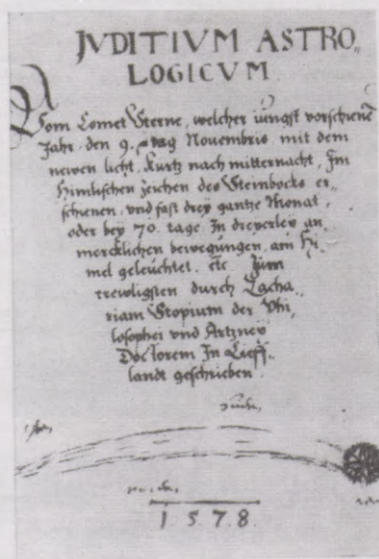 JVDITIVM ASTRO„
LOGICVM
Vom Comet Sterne, welcher iungst vorschienē
Jahr, den 9. tag Nouembris, mit dem
newen licht, Kurtz nach mitternacht, Im
Himlischen zeichen des Steinbocks er„
schienen, vnd fast drey gantze Monat,
oder bey 70. tage In dreyerley an„
mercklichen bewegungen, am Hi„
mel geleuchtet. etc Zum
trewligsten durch Zacha„
riam Stopium der Phi„
losophei vnd Artzney
Doctorem In Lieff„
landt geschrieben.
1578.